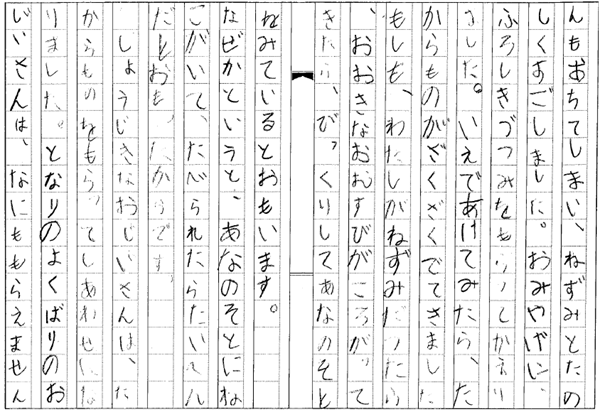 んもおちてしまい、ねずみとたの
しくすごしました。おみやげに、
ふろしきづつみをもらってかえり
ました。いえであけてみたら、た
からものがざくざくでてきました
もしも、わたしがねずみだったら
、おおきなおむすびがころがって
きたら、びっくりしてあなのそと
をみているとおもいます。
なぜかというと、あなのそとにね
こがいて、たべられたらたいへん
だとおもったからです。
しょうじきなおじいさんは、た
からものをもらってしあわせにな
りました。となりのよくばりのお
じいさんは、なにももらえません